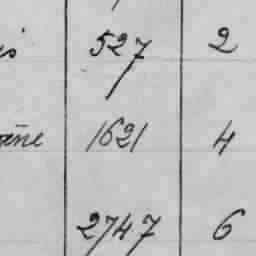 527 2
1621 4
2747 6